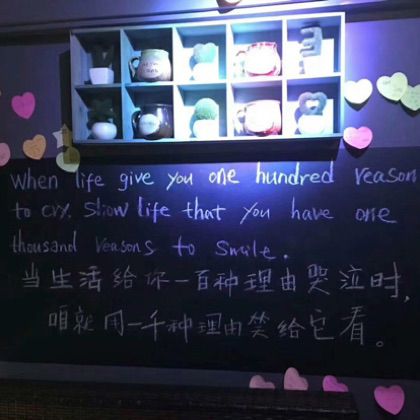 When life give you one hundred reason
to cry. Show life that you have one
thousand reasons to smile.
当生活给你一百种理由哭泣时，
咱就用一千种理由笑给它看。